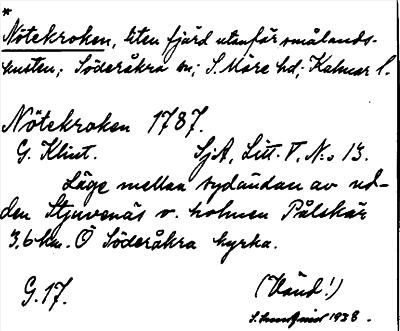 *
Nötekroken, liten fjärd utanför smålands-
kusten; Söderåkra sn; S. Möre hd; Kalmar l.
Nötekroken 1787.
G. Klint. SjA, Litt. V, N:o 13.
Läge mellan sydändan av ud-
den Stjuvenäs o. holmen Pålskär
3,6 km. Ö Söderåkra kyrka.
G. 17. (Vänd!)
1938.